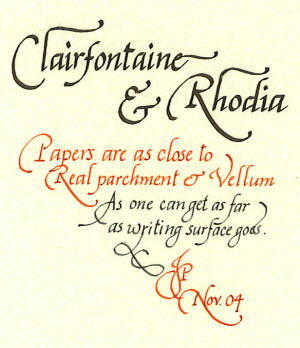 Clairfontaine
& Rhodia
Papers are as close to
Real parchment & Vellum
As one can get as far
as writing surface goes.
JP
Nov. 04